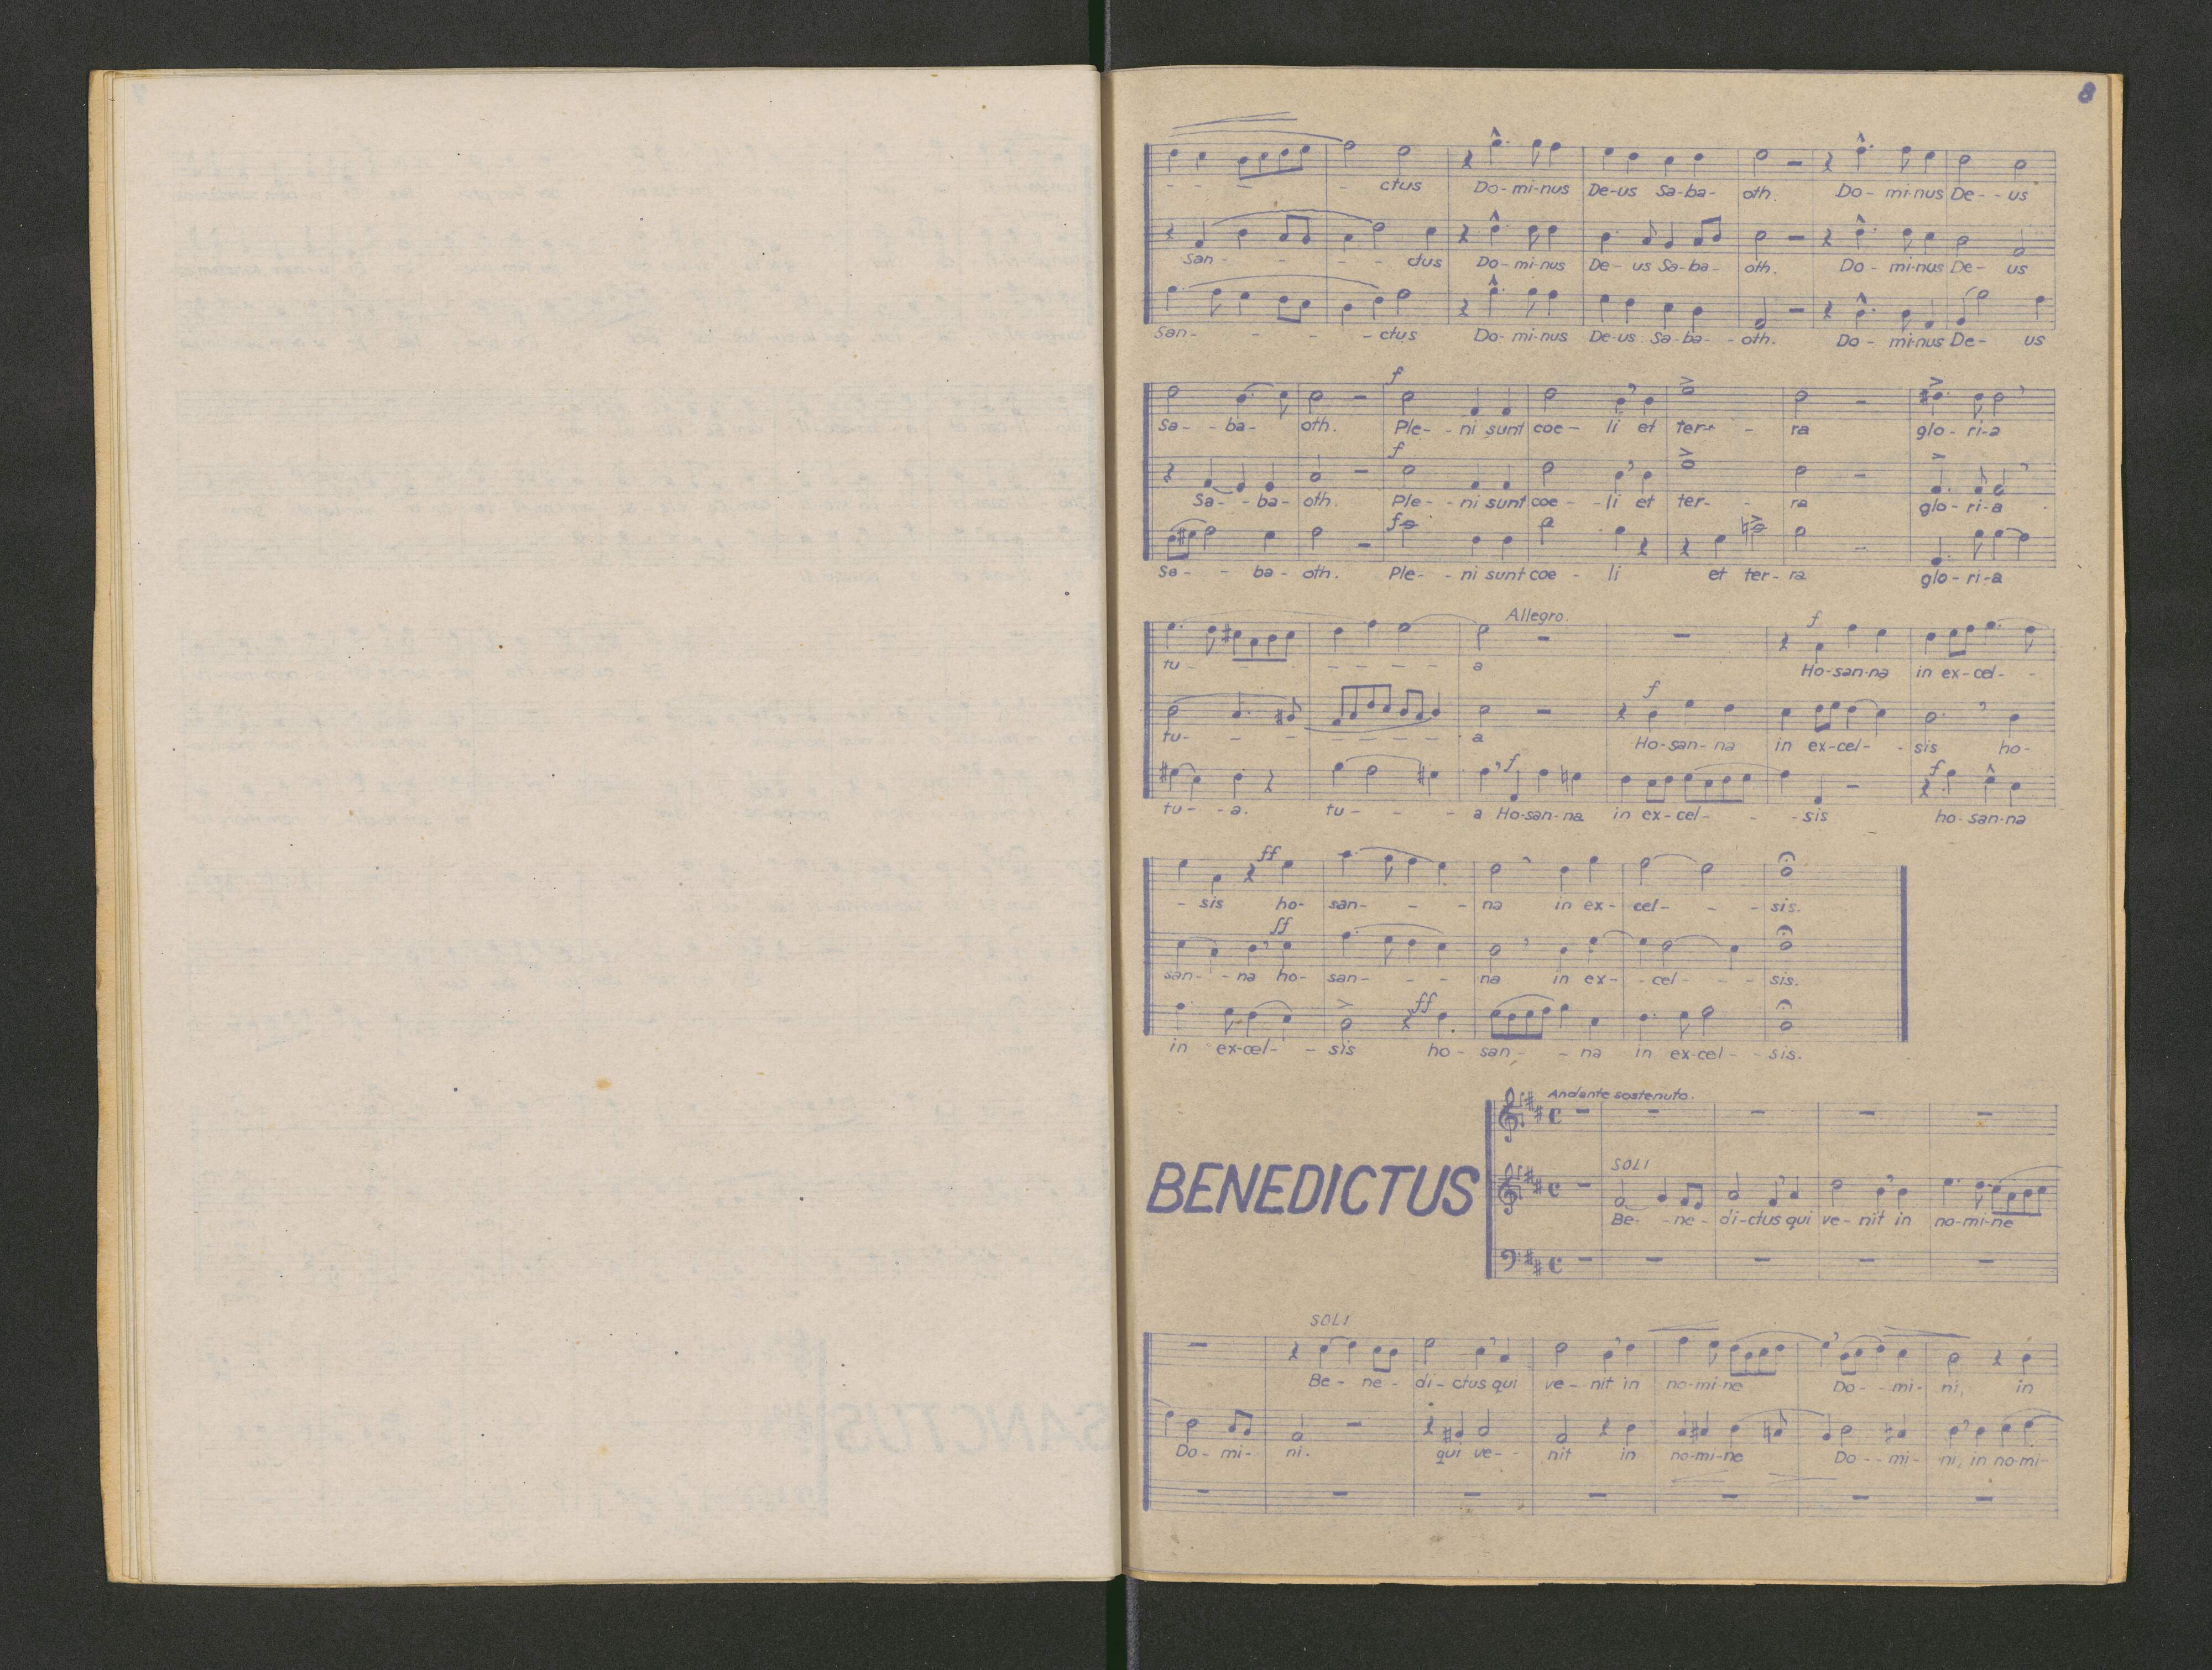 8
- - - - ctus Do-mi-nus De-us Sa-ba- oth. Do- mi-nus De- - us
San- - - - ctus Do-mi-nus De- us Sa-ba- oth. Do- mi-nus De- us
San- - - - ctus Do-mi-nus De-us Sa-ba- - oth. Do- mi-nus De- us
f
Sa- - ba- oth. Ple- - ni sunt coe- li et ter- - ra glo- ri-a
f
Sa- - ba- oth. Ple- - ni sunt coe - - li et ter- - ra glo- ri-a
f
Sa- - ba- oth. Ple- - ni sunt coe - li et ter- ra glo- ri-a
Allegro. f
tu- - - - - - a Ho-san-na in ex-cel- -
f
tu- - - - - - - a Ho-san-na in ex-cel- - sis ho-
f f
tu- - a. tu- - - a Ho-san-na in ex-cel- - - sis ho-san-na
ff
- sis ho- san- - - na in ex- cel- - - sis.
ff
san- - na ho- san- - - na in ex- - cel- - - sis.
ff
in ex-cel- - sis ho- san- - na in ex-cel- - sis.
Andante sostenuto.
SOLI
BENEDICTUS
Be- -ne- di-ctus qui ve- nit in no-mi-ne
SOLI
Be- ne- di-ctus qui ve- nit in no-mi-ne Do- - mi- ni, in
Do- mi- ni. qui ve- - nit in no-mi-ne Do- - mi- ni, in no-mi-
SANCTUS